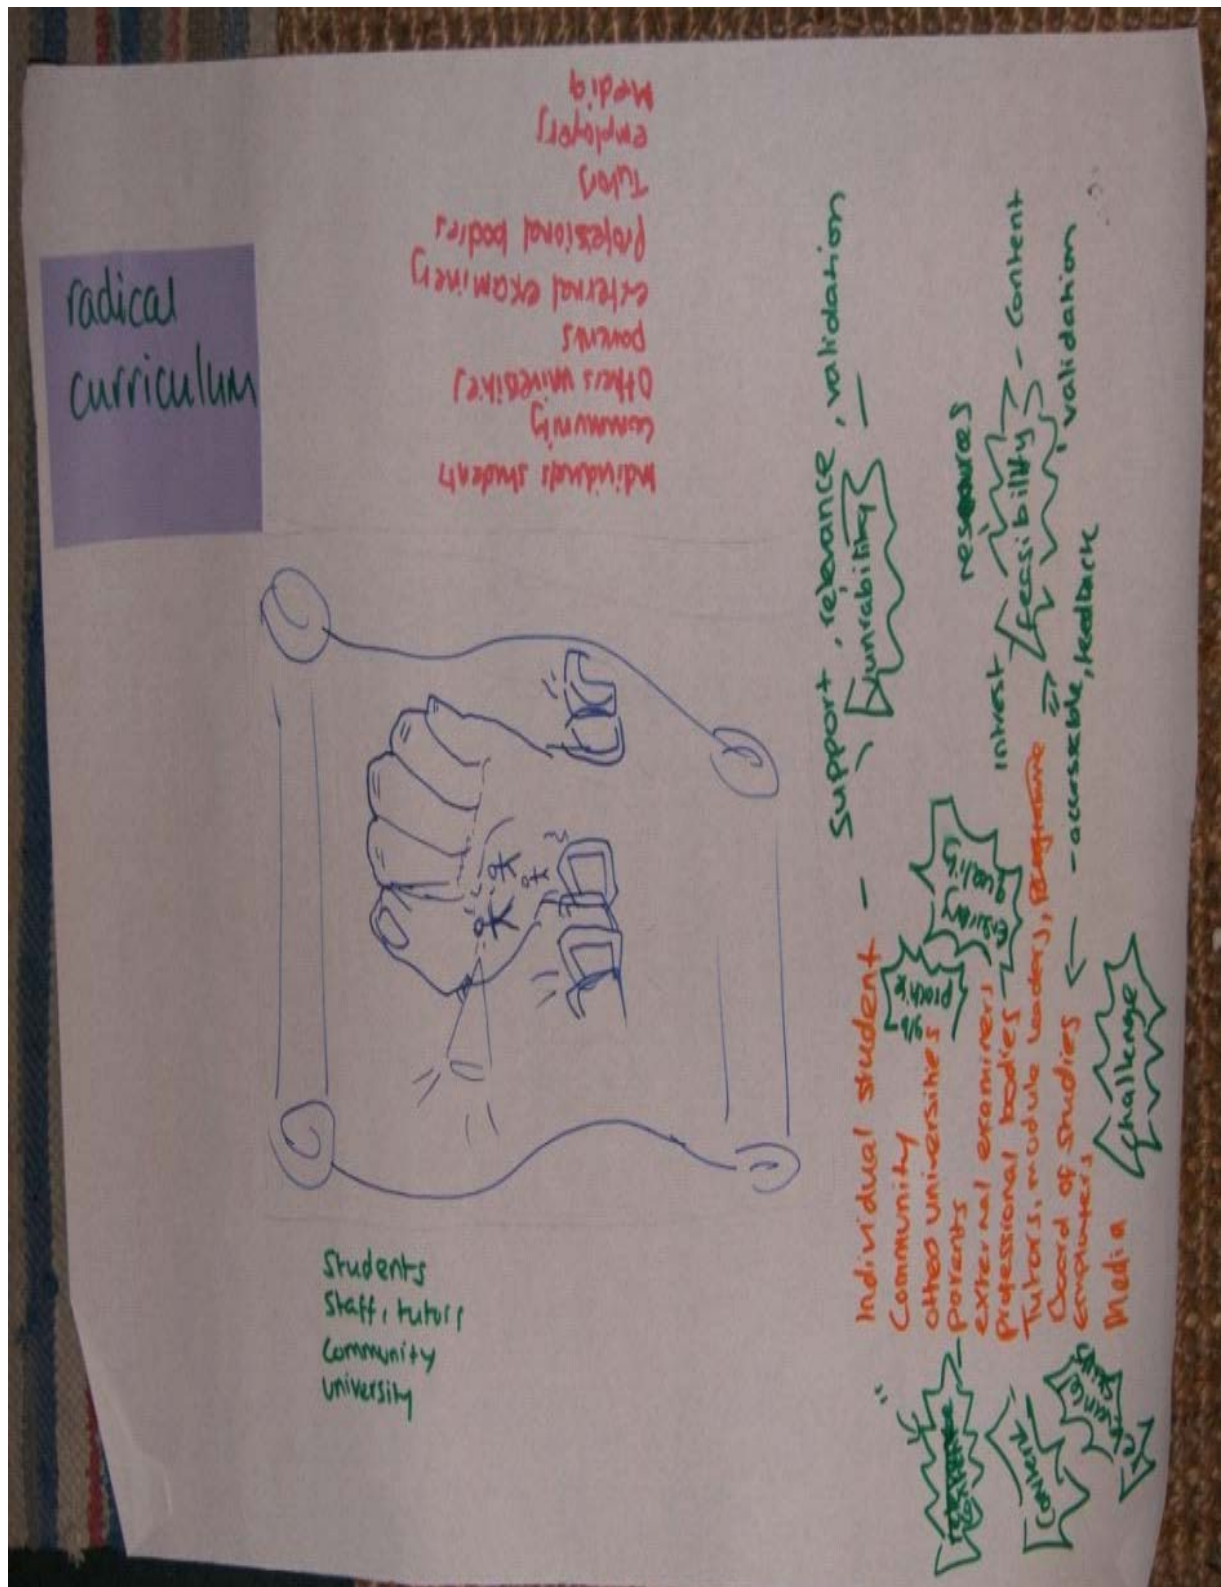 radical
curriculum
Individuals student
Community
Others universities
parents
external examiners
Professional bodies
Tutors
employers
Media
Students
Staff, tutors
Community
University
Individual student - Support, relevance, validation
Community
others universities
parents
external examiners
professional bodies
Tutors, module leaders,
Board of studies
employers
Media
resources
intrest
feasibility
- content
validation
- accessible, feedback
quality
challenge
content